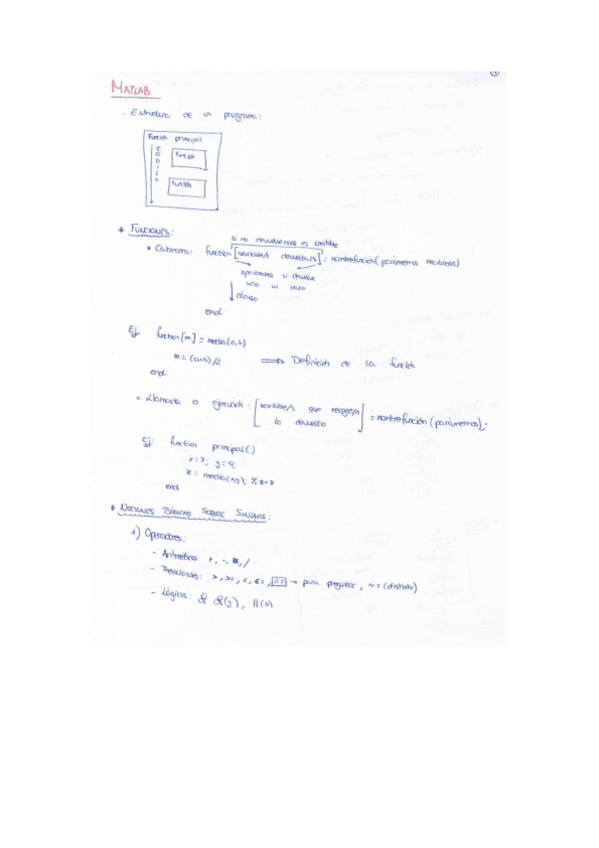 MATLAB
- Estructura de un programa:
Función principal
CODIGO
Función
Función
* FUNCIONES:
si no devuelve nada es omitible
* Cabecera: function [variable/s devuelta/s] = nombrefunción(parámetros recibidos)
opcionales si devuelve
solo un
código
end
Ej: function [m] = media(a,b)
m = (a+b)/2 ⟹ Definición de la función.
end
* Llamada o ejecución: [variable/s que recoge/n lo devuelto] = nombrefunción (parámetros);
Ej: function principal()
x=7; y=9;
z = media(x,y); % z=8
end
* NOCIONES BÁSICAS SOBRE SINTAXIS:
1) Operadores:
- Aritméticos: +, -, *, /
- Relacionales: >, >=, <, <=, == → para preguntar, ~= (distinto)
- Lógicos: && (y), || (o)